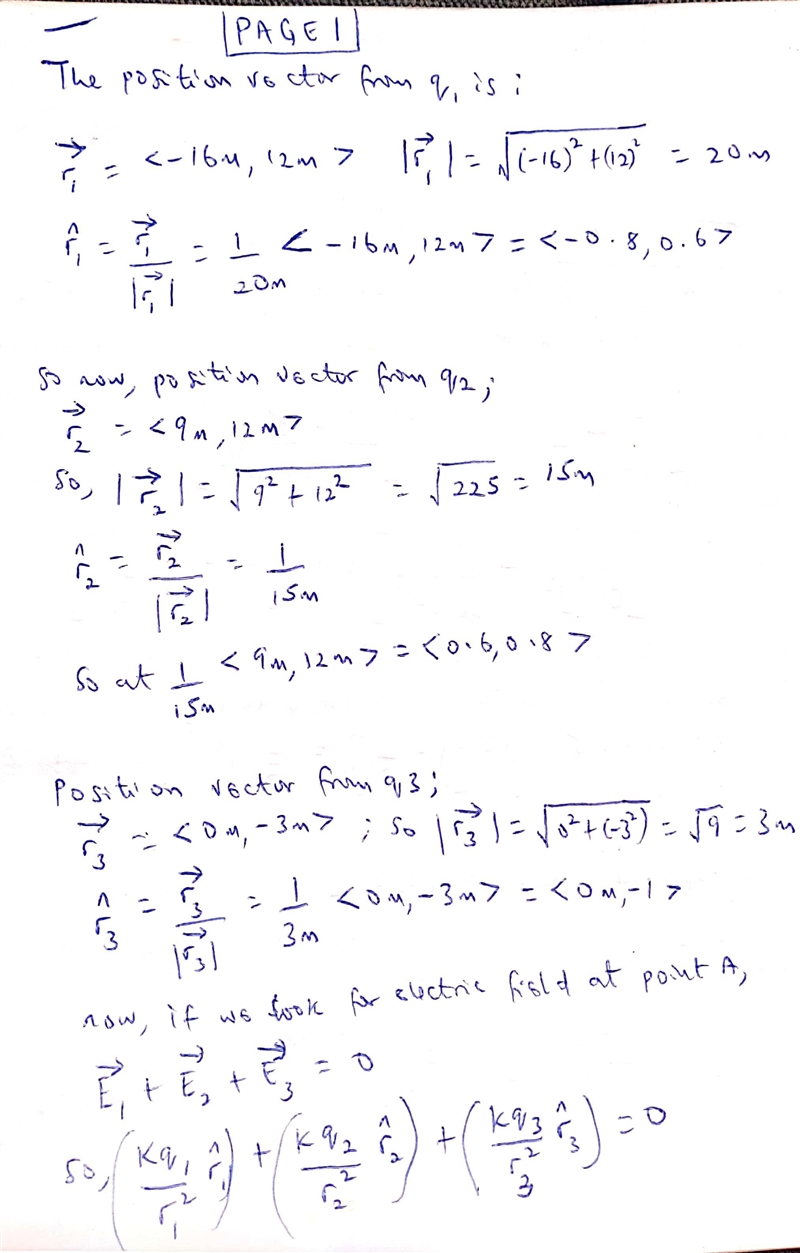 PAGE 1
The position vector from q₁ is :
r⃗₁ = <-16m, 12m> |r⃗₁| = √((-16)² + (12)²) = 20m
r̂₁ = r⃗₁/|r⃗₁| = 1/20m <-16m, 12m> = <-0.8, 0.6>
So now, position vector from q2;
r⃗₂ = <9m, 12m>
So, |r⃗₂| = √(9² + 12²) = √225 = 15m
r̂₂ = r⃗₂/|r⃗₂| = 1/15m
So at 1/15m <9m, 12m> = <0.6, 0.8>
Position vector from q3;
r⃗₃ = <0m, -3m> ; So |r⃗₃| = √(0² + (-3²)) = √9 = 3m
r̂₃ = r⃗₃/|r⃗₃| = 1/3m <0m, -3m> = <0m, -1>
now, if we look for electric field at point A,
E⃗₁ + E⃗₂ + E⃗₃ = 0
So, (Kq₁/r₁² r̂₁) + (Kq₂/r₂² r̂₂) + (Kq₃/r₃² r̂₃) = 0